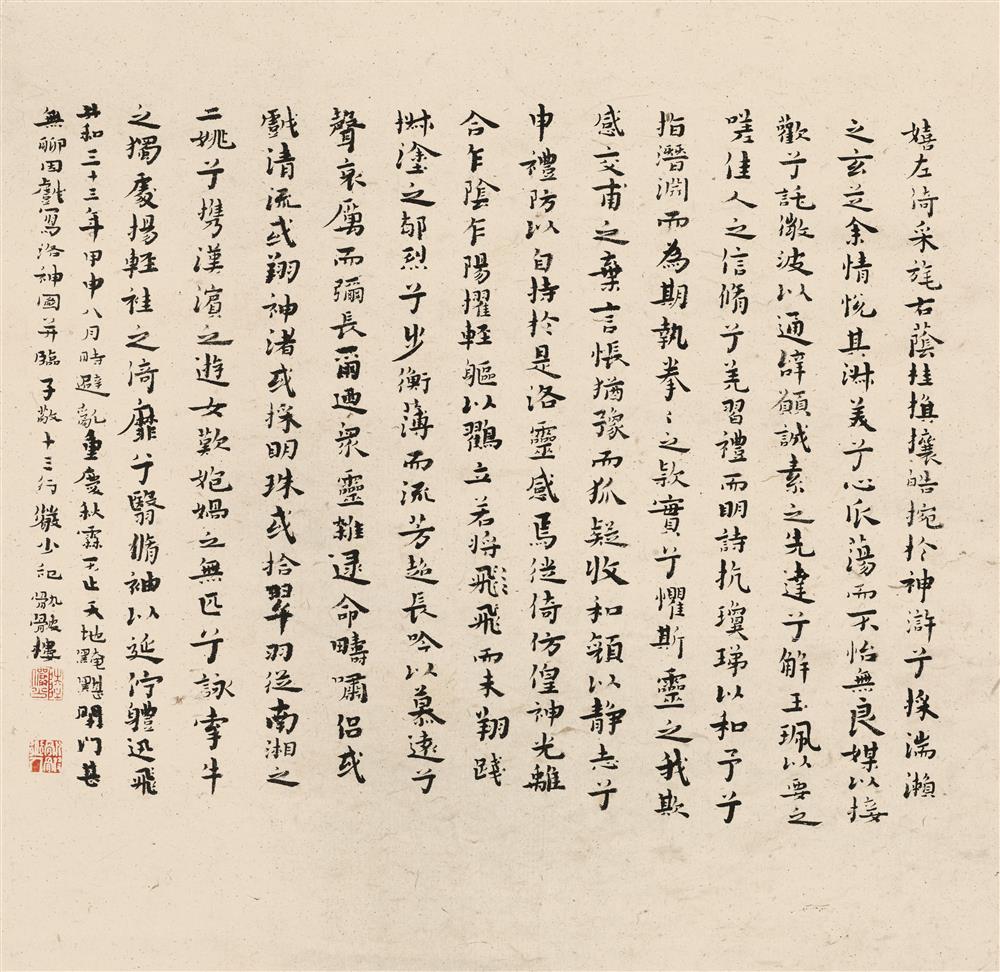 嬉左倚采旄右蔭桂旗攘皓捥於神滸兮採湍瀨
之玄芝余情悅其淋美兮心振蕩而不怡無良媒以接
歡兮託微波以通辭願誠素之先達兮解玉珮以要之
嗟佳人之信脩兮羌習禮而明詩抗瓊珶以和予兮
指潛淵而為期執拳〻之欵實兮懼斯靈之我欺
感交甫之棄言悵猶豫而狐疑收和顏以静志兮
申禮防以自持於是洛靈感焉徙倚仿偟神光離
合乍陰乍陽擢輕軀以鸖立若將飛〻飛而未翔踐
椒塗之郁烈兮步衡薄而流芳超長吟以慕遠兮
聲哀厲而彌長爾迺衆靈雜遝命疇嘯侣或
戲清流或翔神渚或採明珠或拾翠羽從南湘之
二姚兮攜漢濱之遊女歎匏媧之無匹兮詠牽牛
之獨處揚輕袿之渏靡兮翳脩袖以延佇體迅飛
共和三十三年甲申八月時避亂重慶秋霖不止天地黤黮閉門甚
無聊因戲寫洛神圖并臨子敬十三行徵少紀 骩骳樓